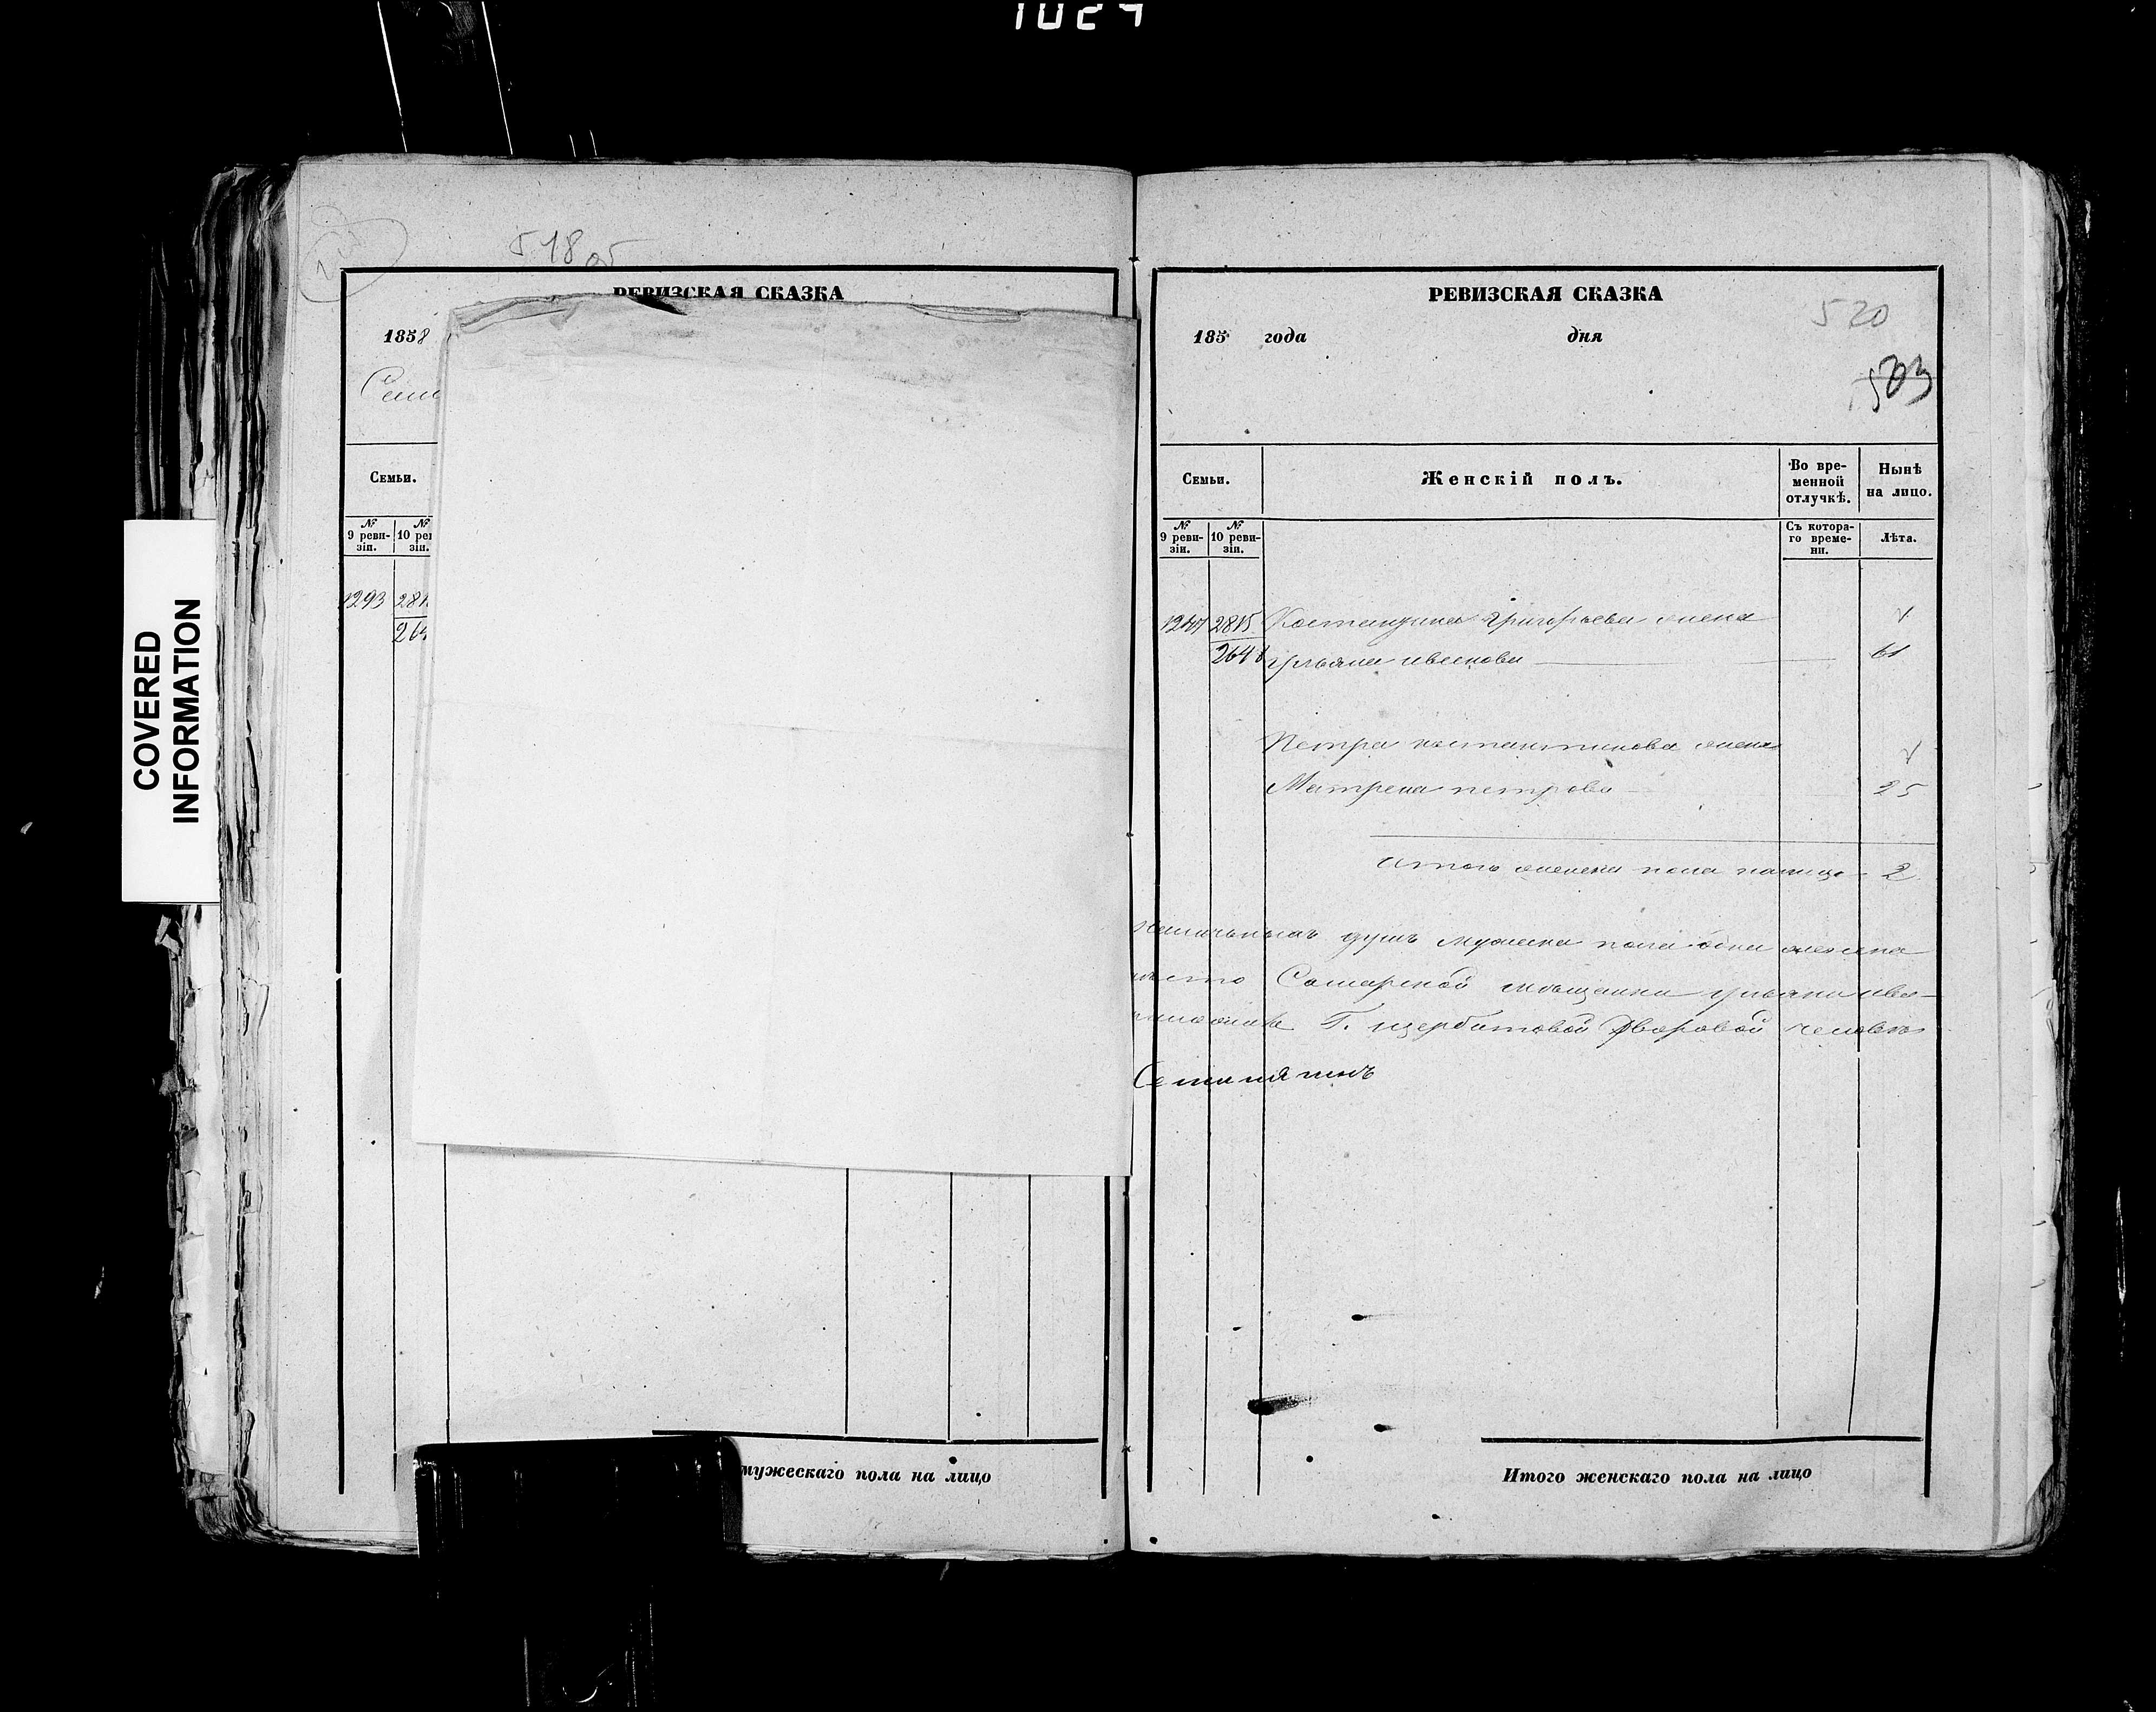 1024
COVERED
INFORMATION
518 об
РЕВИЗСКАЯ СКАЗКА
1858
Семьи.
№ 9 реви-зіи.
1293
мужескаго пола на лицо
РЕВИЗСКАЯ СКАЗКА
520
185 года дня
503
Семьи.
Женскій полъ.
Во вре-менной отлучкѣ.
Нынѣ на лицо.
№ 9 реви-зіи.
№ 10 реви-зіи.
Съ котора-го време-ни.
Лѣта.
2815 Костентина Григорьева жена
264 Ульяна иванова 61
Петра костантинова жена
Матрена петрова 25
Итого женска пола налицо 2
душъ мужска пола одна женска
Самарской мѣщанки ульяны ива-
Г. щербитовой Дворовой человекъ
Итого женскаго пола на лицо